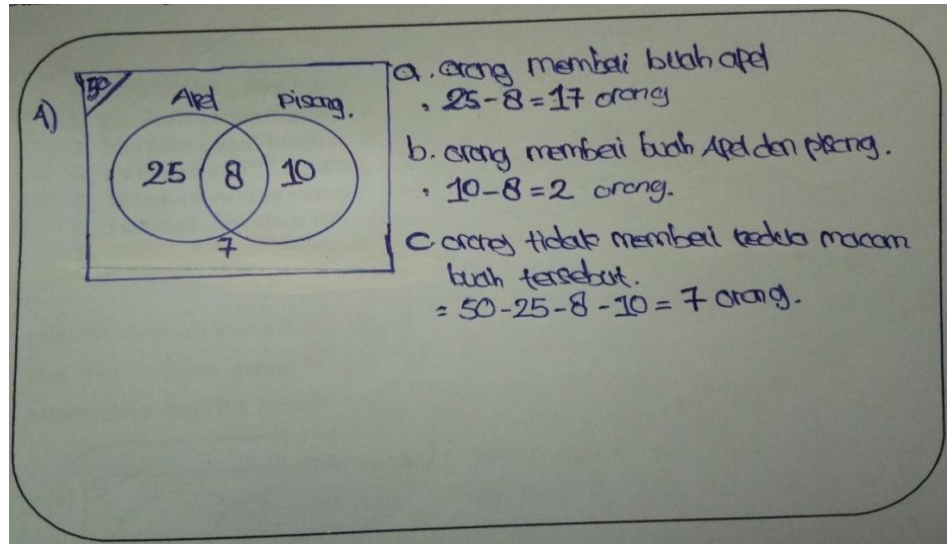 A)
50
Apel pisang.
25 8 10
7
a. orang membeli buah apel
= 25-8 = 17 orang
b. orang membeli buah Apel dan pisang.
= 10-8 = 2 orang.
c. orang tidak membeli kedua macam
buah tersebut.
= 50-25-8-10 = 7 orang.